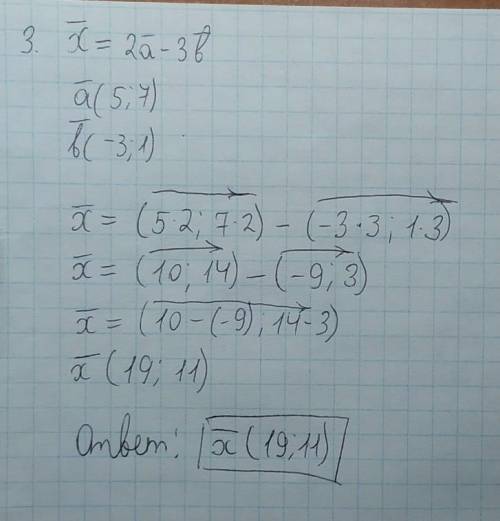 3. x̅ = 2a̅ - 3b̅
a̅(5;7)
b̅(-3;1)
x̅ = (5·2; 7·2) - (-3·3; 1·3)
x̅ = (10; 14) - (-9; 3)
x̅ = (10-(-9); 14-3)
x̅ (19; 11)
Ответ: x̅ (19;11)